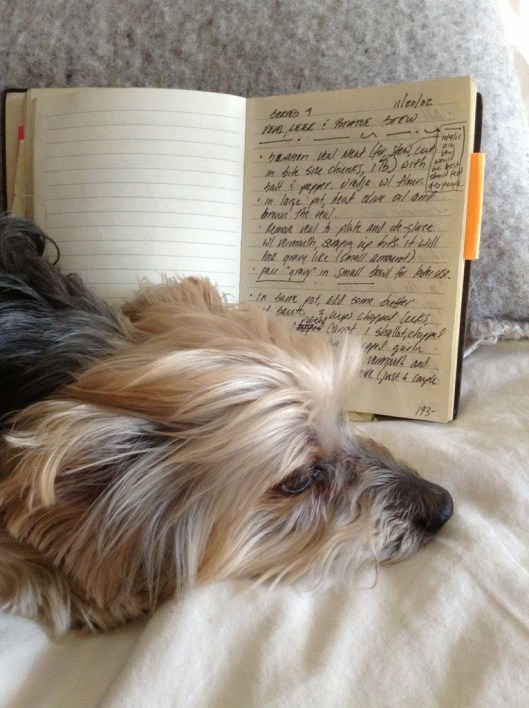 SERVES 4
11/20/02
VEAL, LEEK & POTATOE STEW
• Season veal meat (for stew, cut
in bite size chunks, 1 lb) with
salt & pepper. Dredge w/ flour.
• In large pot, heat olive oil and
brown the veal.
• Remove veal to plate and de-glaze
w/ vermouth, scraping up bits, it will
look gravy like (small amount)
• pour "gravy" in small bowl for later use.
• In same pot, add some butter
& saute 3 cups chopped leeks,
carrot, 1 shallot, chopped
garlic
vermouth and
(just a couple
2 lb
veal
would
be best
should feed
people
193-